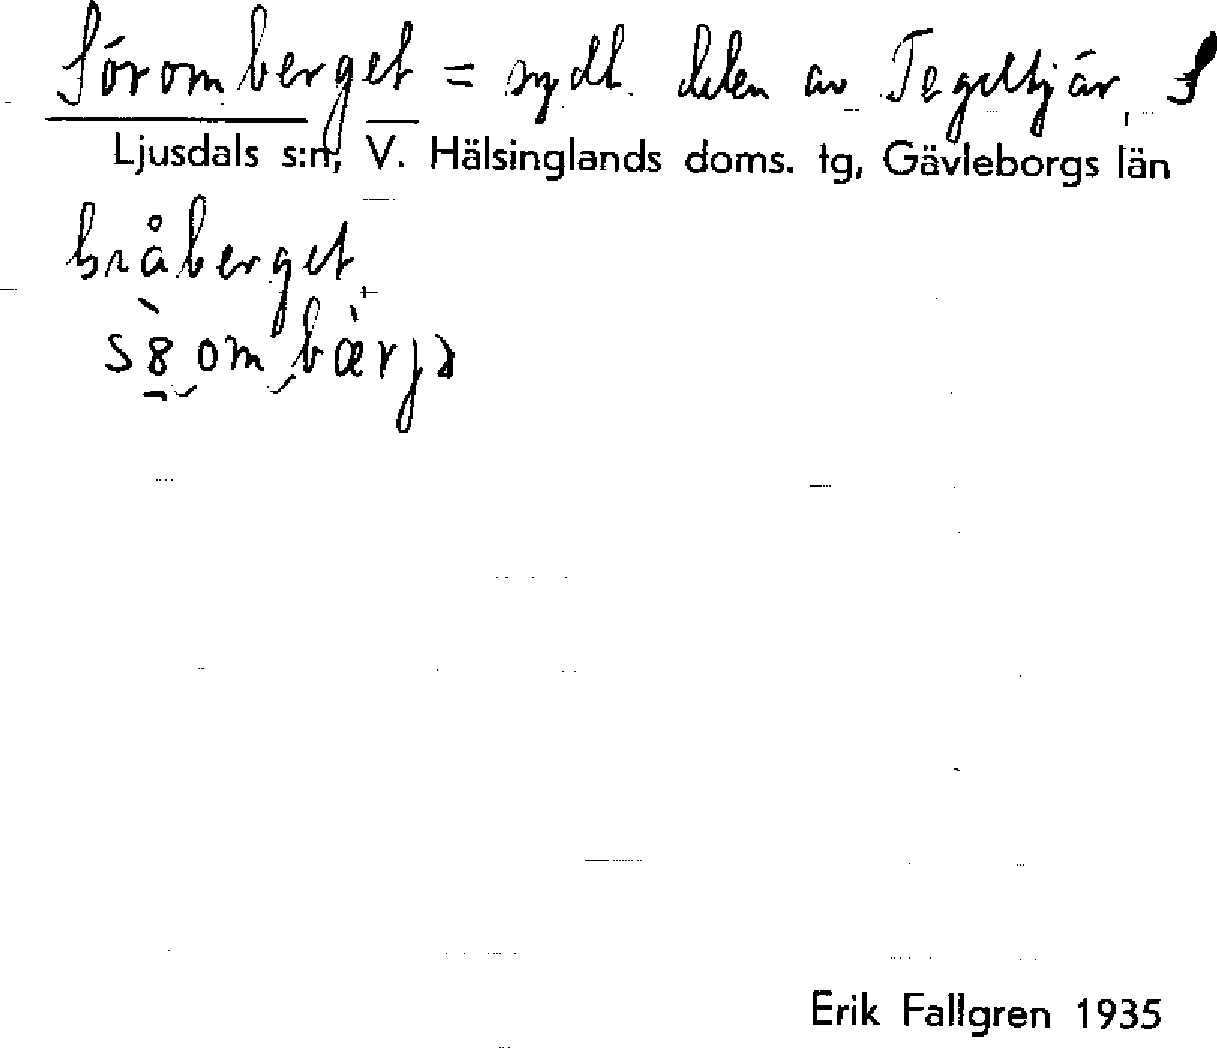 Söromberget = sydl. delen av Tegeltjär
Ljusdals s:n, V. Hälsinglands doms. tg, Gävleborgs län
bråberget
Erik Fallgren 1935